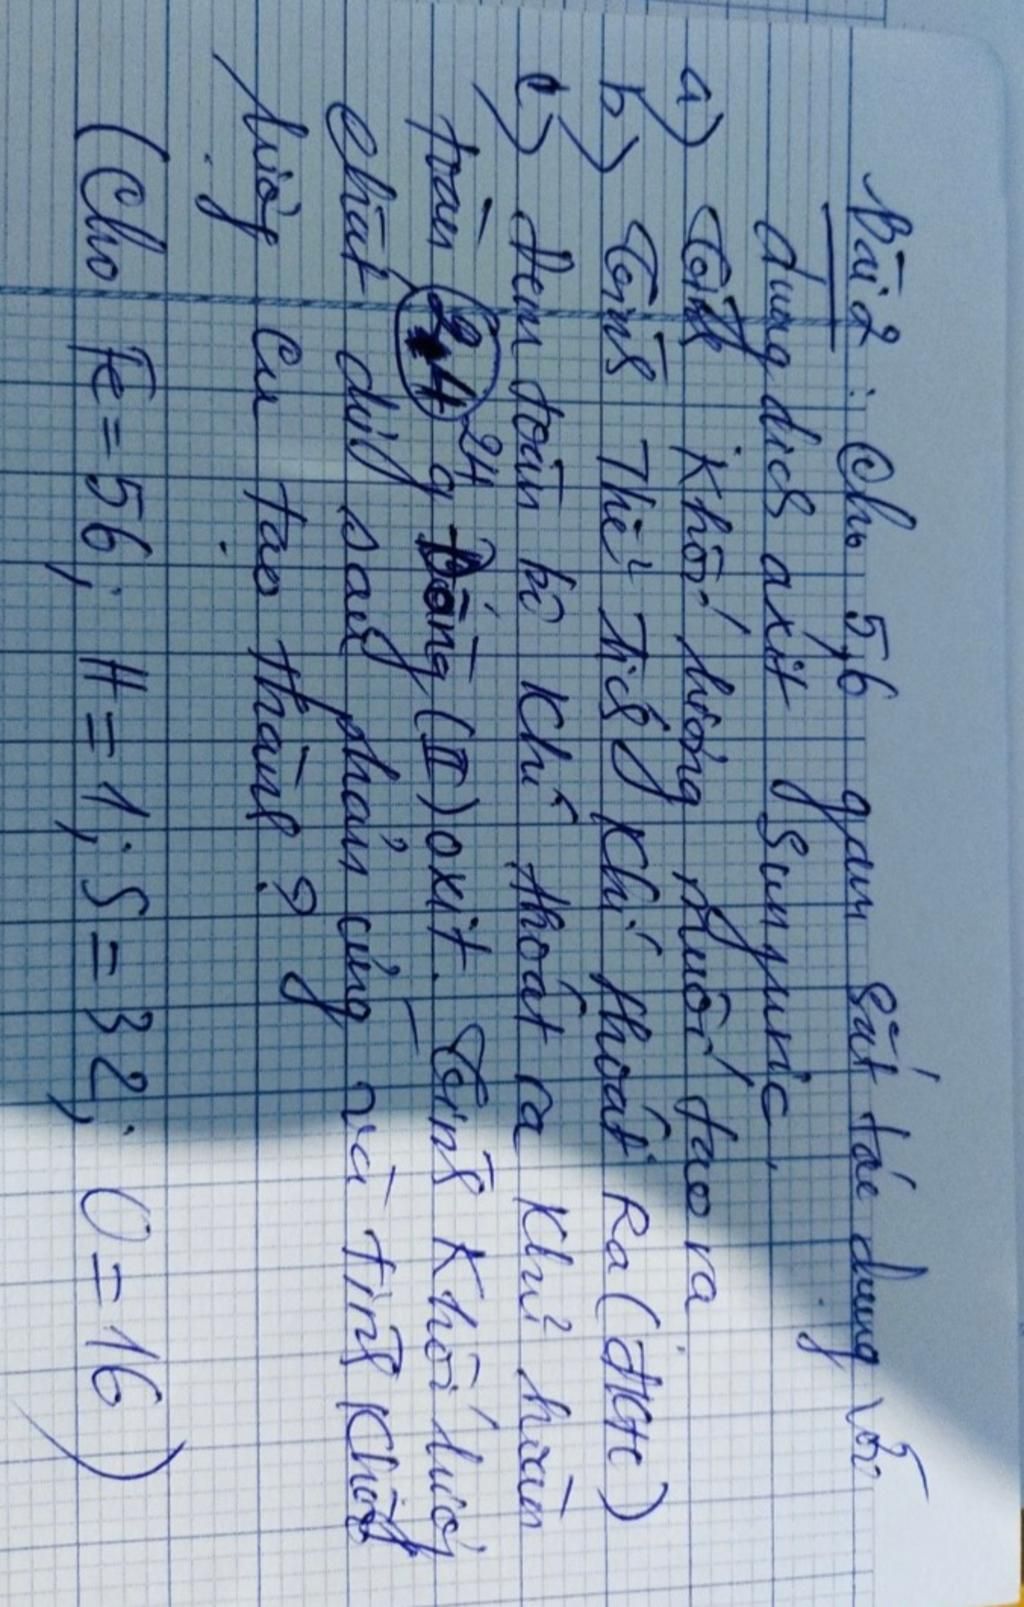 Bài 2: Cho 5,6 gam Sắt tác dụng với
dung dịch axit Sunfuric.
a) Tính khối lượng Muối tạo ra
b) Tính Thể Tích Khí thoát Ra (ĐKTC)
c) Đem toàn bộ Khí thoát ra Khử hoàn
toàn 24 g Đồng (II) oxit. Tính Khối lượng
chất dư sau phản ứng và tính Khối
lượng Cu tạo thành?
(Cho Fe = 56; H = 1; S = 32; O = 16)